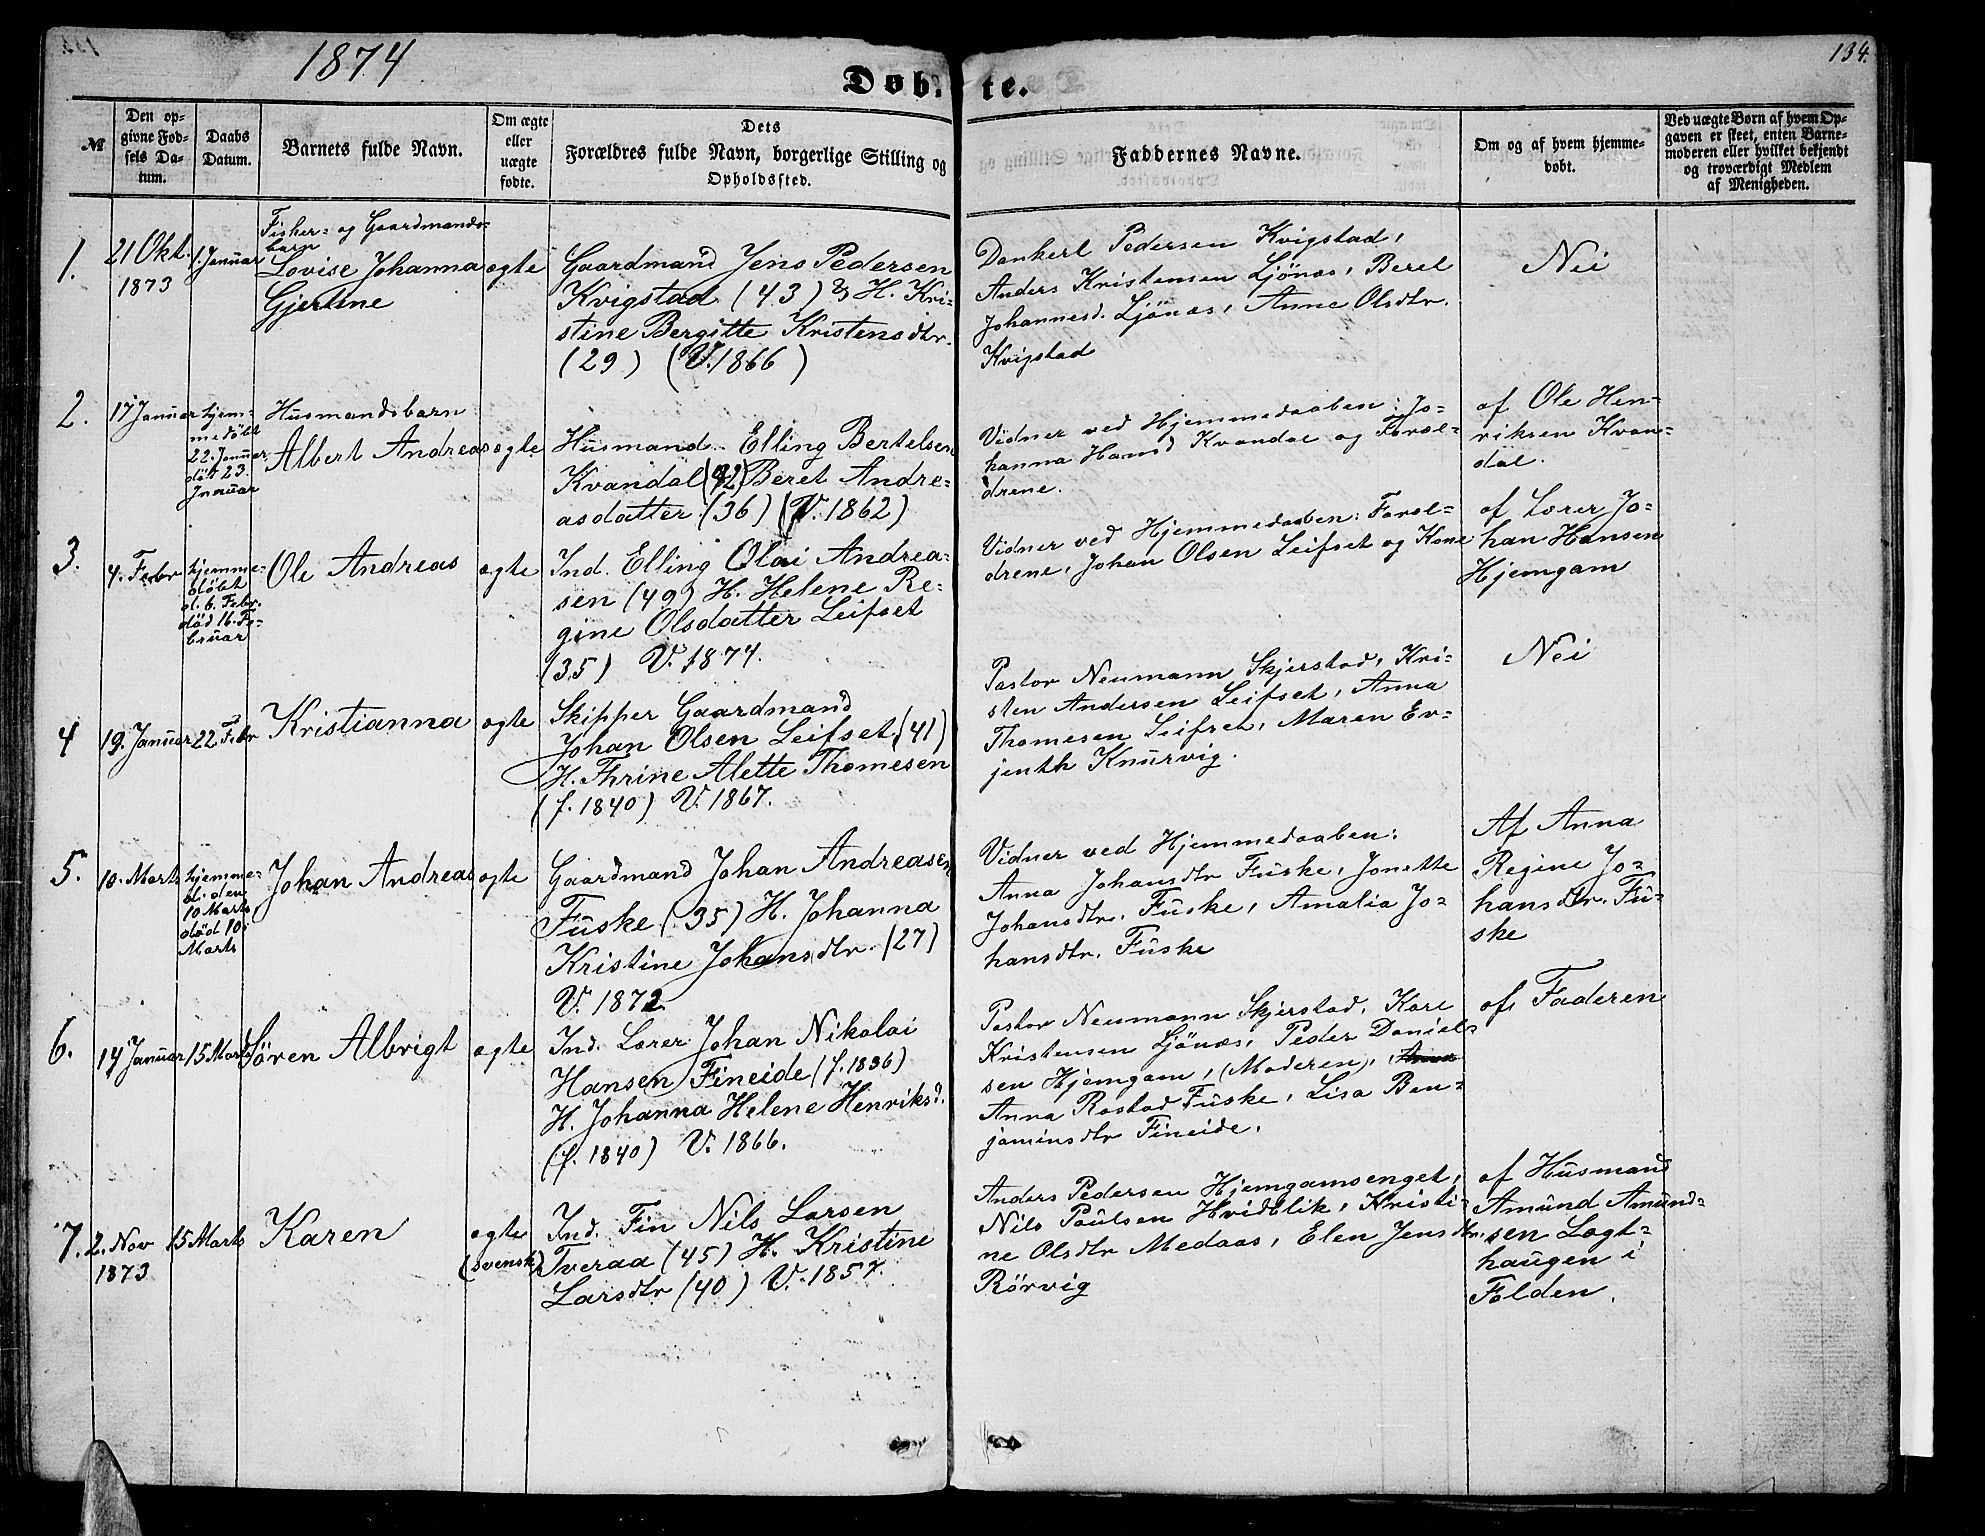 1874
134.
Døbte.
№
Den opgivne Fødsels Datum.
Daabs Datum.
Barnets fulde Navn.
Om ægte eller uægte fødte.
Dets Forældres fulde Navn, borgerlige Stilling og Opholdssted.
Faddernes Navne.
Om og af hvem hjemmedøbt.
Ved uægte Børn af hvem Opgaven er skeet, enten Barnemoderen eller hvilket bekjendt og troværdigt Medlem af Menigheden.
1.
21 Okt.
1873
1. Januar
Fisker- og Gaardmands-
barn
Lovise Johanna
Gjertine
ægte
Gaardmand Jens Pedersen
Kvigstad (43) & H. Kri-
stine Bergitte Kristensdtr.
(29) (V. 1866)
Dankert Pedersen Kvigstad,
Anders Kristensen Ljönæs, Beret
Johannesd. Ljönæs, Anne Olsdtr.
Kvigstad
Nei
2.
17 Januar
hjem-
medøbt
22. Januar
død 23.
Januar
Husmandsbarn
Albert Andreas
ægte
Husmand Elling Bertelsen
Kvandal (42) Beret Andre-
asdatter (36) (V. 1862)
Vidner ved Hjemmedaaben: Jo-
hanna Hansd Kvandal og Foræl-
drene.
af Ole Hen-
riksen Kvan-
dal.
3.
4. Febr
hjemme-
døbt
d. 6. Febr.
død 16. Fe-
bruar
Ole Andreas
ægte
Ind. Elling Olai Andrea-
sen (49) H. Helene Re-
gine Olsdatter Leifset
(35) V. 1874.
Vidner ved Hjemmedaaben: Foræl-
drene, Johan Olsen Leifset og Kone
af Lærer Jo-
han Hansen
Hjemgam
4
19. Januar
22. Febr
Kristianna
ægte
Skipper Gaardmand
Johan Olsen Leifset (41)
H. Thrine Alette Thomesen
(f. 1840) V. 1867.
Pastor Neumann Skjerstad, Kri-
sten Andersen Leifset, Anna
Thomesen Leifset, Maren Ev-
jenth Knurvig.
Nei
5.
10. Marts
hjemme-
d. den
10 Marts
død 10.
Marts
Johan Andreas
ægte
Gaardmand Johan Andreasen
Fuske (35) H. Johanna
Kristine Johansdtr. (27)
V. 1872
Vidner ved Hjemmedaaben:
Anna Johansdtr Fuske, Jonette
Johansdtr. Fuske, Amalia Jo-
hansdtr. Fuske
Af Anna
Regine Jo-
hansdtr. Fu-
ske
6.
14 Januar
15 Marts
Sören Albrigt
ægte
Ind. Lærer Johan Nikolai
Hansen Fineide (f. 1836)
H. Johanna Helene Henriksd.
(f. 1840) V. 1866.
Pastor Neumann Skjerstad, Kare
Kristensen Ljönæs, Peder Daniel-
sen Hjemgam, (Moderen), Anna
Anna Rostad Fuske, Lisa Ben-
jaminsdtr Fineide.
af Faderen
7.
2. Nov
1873
15 Marts
Karen
ægte
(svensk)
Ind. Fin Nils Larsen
Tveraa (45) H. Kristine
Larsdtr (40) V. 1857.
Anders Pedersen Hjemgamsenget,
Nils Paulsen Hvidblik, Kristi-
ne Olsdtr Medaas, Elen Jensdtr.
Rörvig
af Husmand
Amund Amund-
sen Lagt-
haugen i
Folden.